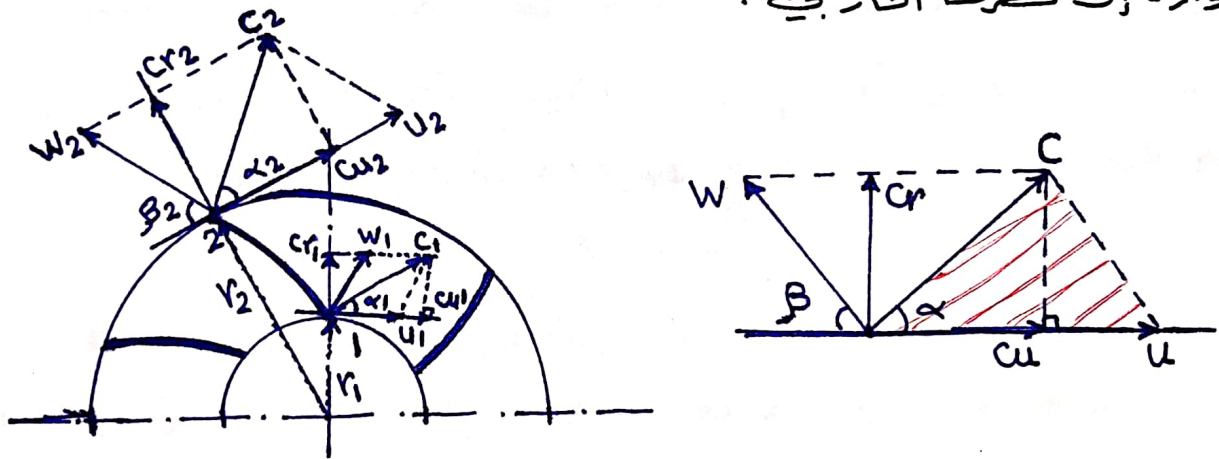 إلى
C2
Cr2
W2
U2
α2
Cu2
β2
2
Cr1
W1
C1
r2
α1
Cu1
U1
1
r1
W
Cr
C
β
α
Cu
U